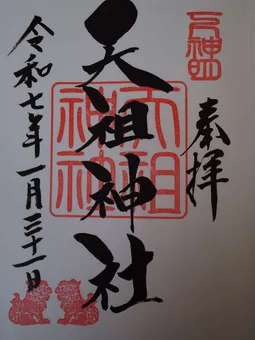 神明
奉拝
天祖神社
天祖
神社
令和七年一月三十一日